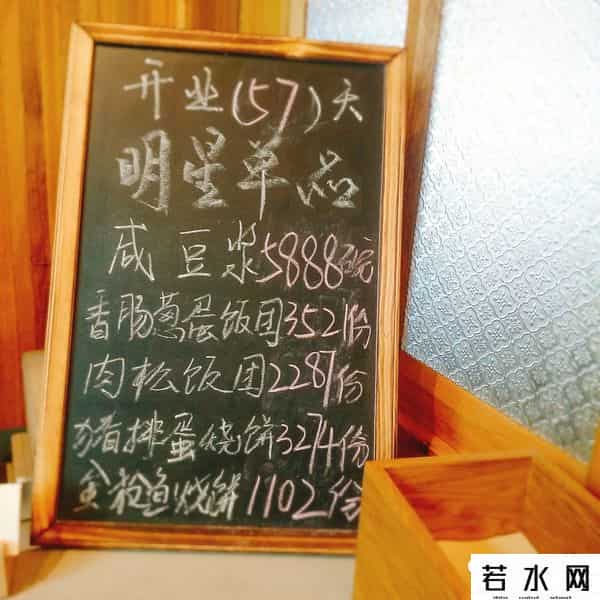 开业(57)天
明星单品
咸豆浆5888碗
香肠葱蛋饭团3521份
肉松饭团2287份
猪排蛋烧饼3274份
金枪鱼烧饼1102份
若水网